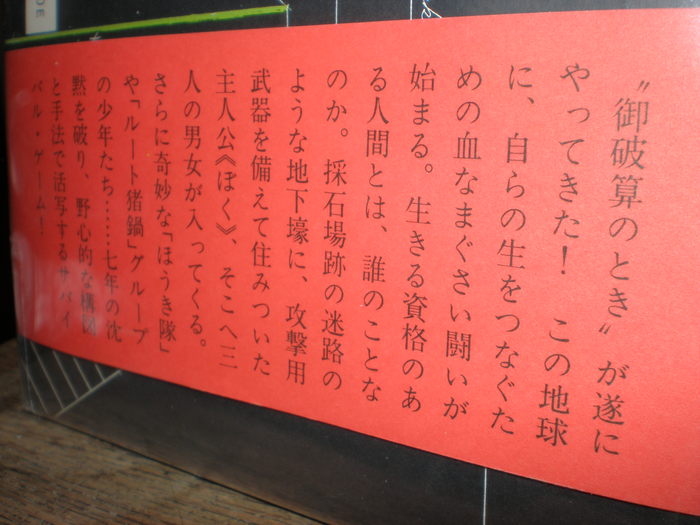 〝御破算のとき〟が遂に
やってきた！　この地球
に、自らの生をつなぐた
めの血なまぐさい闘いが
始まる。生きる資格のあ
る人間とは、誰のことな
のか。採石場跡の迷路の
ような地下壕に、攻撃用
武器を備えて住みついた
主人公《ぼく》、そこへ三
人の男女が入ってくる。
さらに奇妙な「ほうき隊」
や「ルート猪鍋」グループ
の少年たち……七年の沈
黙を破り、野心的な構図
と手法で活写するサバイ
バル・ゲーム！